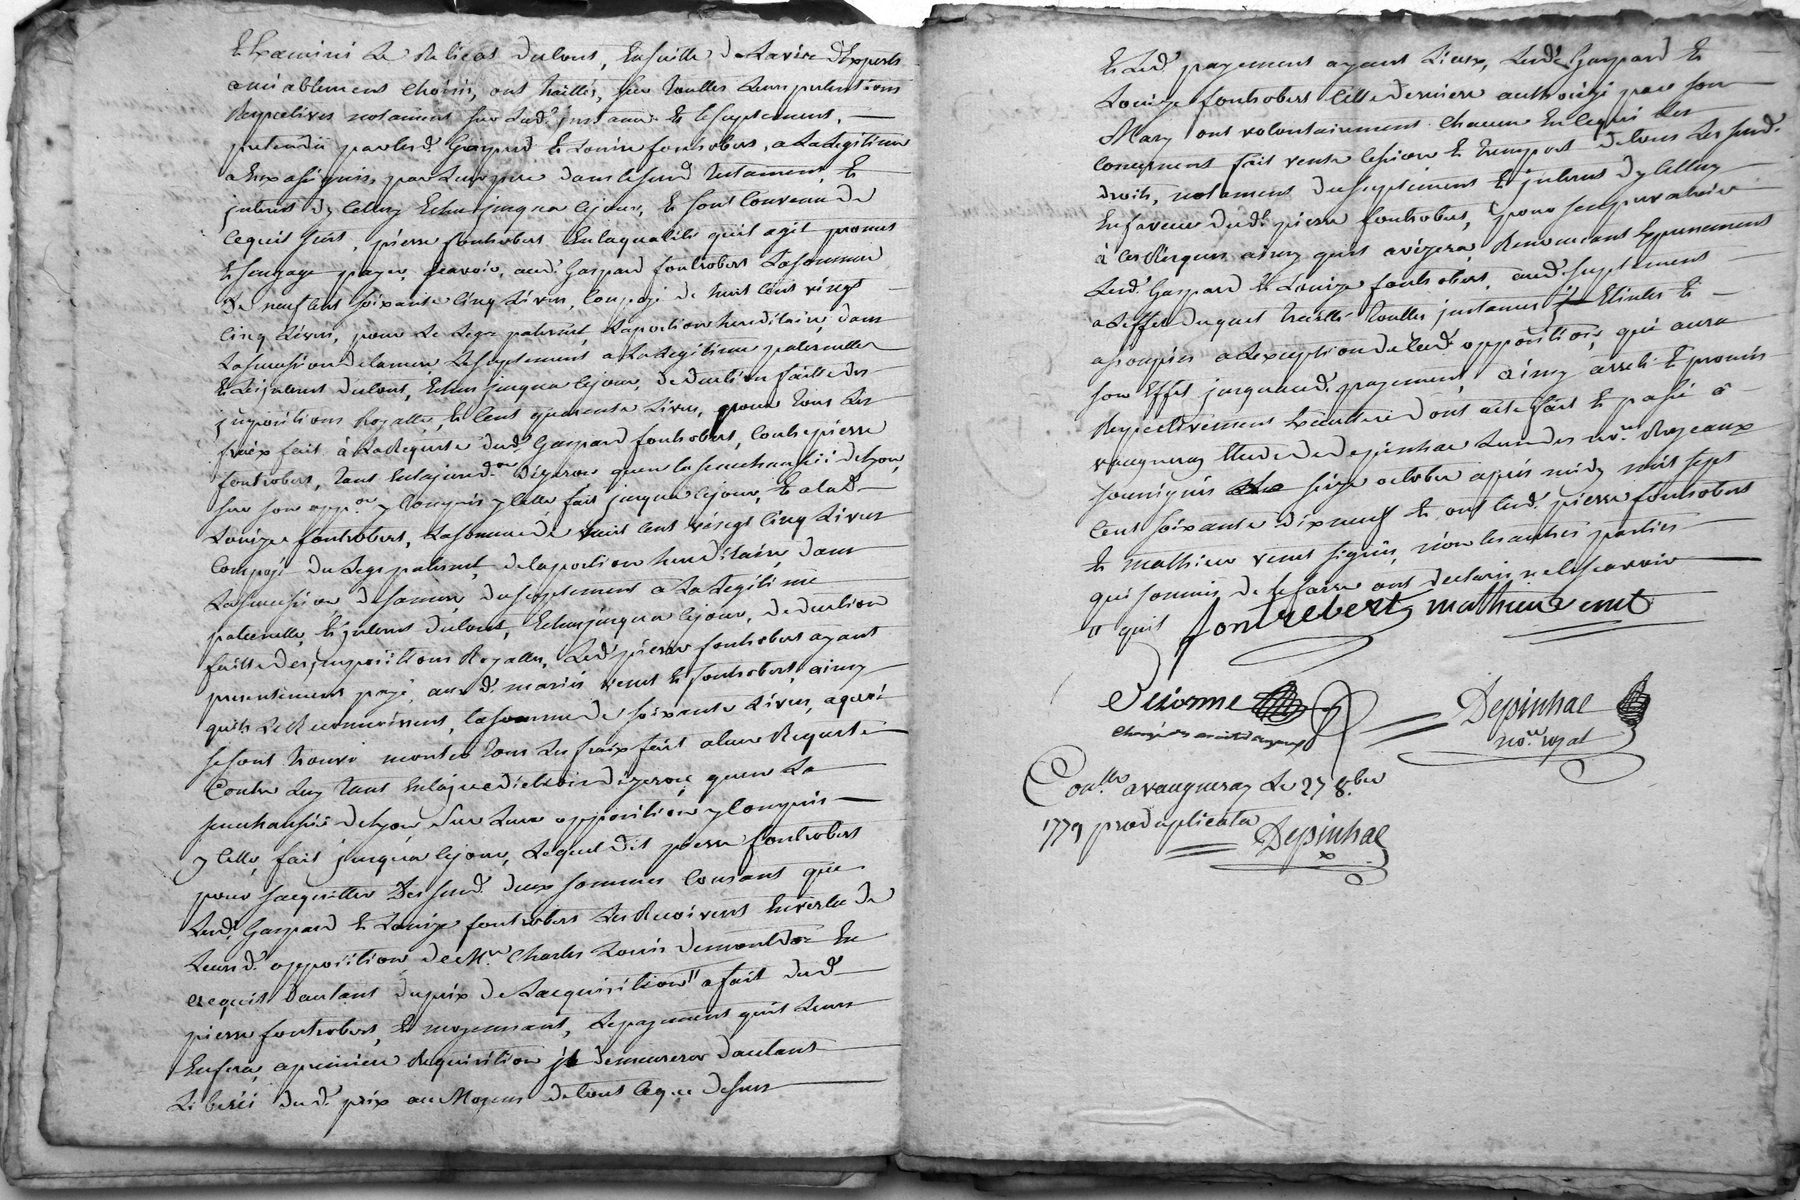 Examiné le Relicat du tout, ensuitte de Lavis d'Experts
amiablement choisis, ont traittés, sur touttes Leurs pretentions
Respectives notament sur Lesd. instances Et le suplement,
pretendü par lesd. Gaspard Et Louise fontrobert, a La Legitime
a Eux assignés, par Leur pere dans le susd testament, Et
interest dycelluy Echus jusqua ce jour, Et sont convenu de
ce quit suit, pierre fontrobert En la qualité quil agit promet
Et s'engage payer, scavoir, aud. Gaspard fontrobert La somme
De neuf cent soixante cinq Livres, composé de huit cent vingt
cinq Livres, pour Le Legs paternel, La portion hereditaire, dans
La sucession de la mere, Le suplement a La Legitime paternelle
Et Les interest du tout, Echus jusqua ce jour, deduction faitte des
impositions Royalles, Et cent quarente Livres, pour tous Les
fraix fait à La Requeste dud. Gaspard fontrobert, contre pierre
fontrobert, tant En la jurid.on Dizeron quen la senechaussée de Lyon,
sur son opp.on y compris ycelle, fait jusqua ce jour, Et a lad.
Louise fontrobert, La somme de huit cent vingt cinq Livres
composé du Legs paternel, de la portion hereditaire, dans
La sucession de sa mere, du suplement a La Legitime
paternelle, Et interest du tout, Echus jusqua ce jour, deduction
faitte des impositions Royalles, Led. pierre fontrobert ayant
presentement payé, aux d. mariés venet Et fontrobert, ainsy
quils Le Reconnoissent, la somme de soixante Livres, a quoi
se sont trouvé monter tous Les fraix fait a leur Requeste
Contre Luy tant En la jurediction dizeron, quen La
senechaussée de Lyon sur Leur opposition y compris
ycelle, fait jusqua ce jour, Lequel dit pierre fontrobert
pour sacquitter Des susd. deux sommes consent que
Lesd. Gaspard Et Louise fontrobert Les Recoivent En vertu de
Leurs d. opposition de M.re Charles Louis demontdor En
acquit dautant du prix de Lacquisition " a fait dud.
pierre fontrobert, Et moyennant, Le payement quil Leurs
En fera, a premiere Requisition il demeurera dautant
Liberéé dud. prix au Moyen de tout ce que dessus
Et Led. payement ayant Lieux, Lesd. Gaspard Et
Louize fontrobert cette derniere authorizé par son
Mary ont volontairement chacun En ce qui Les
concernent fait vente cession Et transport de tous Les susd.
droits, notament du suplement Et interest dycelluy
En faveur dud. pierre fontrobert, pour sen prevaloir
à ces Risques ainsy quil avizera, Renonceant Expressement
Lesd. Gaspard Et Louize fontrobert, aud. suplement
a Leffet duquel traitté touttes instances Eteintes Et
assoupies a Lexception de lad. opposition, qui aura
son Effet jusquaud. payement, ainsy arresté Et promis
Respectivement Executer dont acte fait Et passé a
vaugneray Etude de depinhac Lun des no.res Royeaux
soussignés seize octobre après midy mil sept
cent soixante dix neuf Et ont Led. pierre fontrobert
Et mathieu venet signés, non les autres parties
qui sommés de le faire ont declaré ne le scavoir
" quil fontrebert mathieu venet
Depinhac
no.re royal
Con.llé a vaugneray Le 27 8.bre
1779 pro duplicata Depinhac